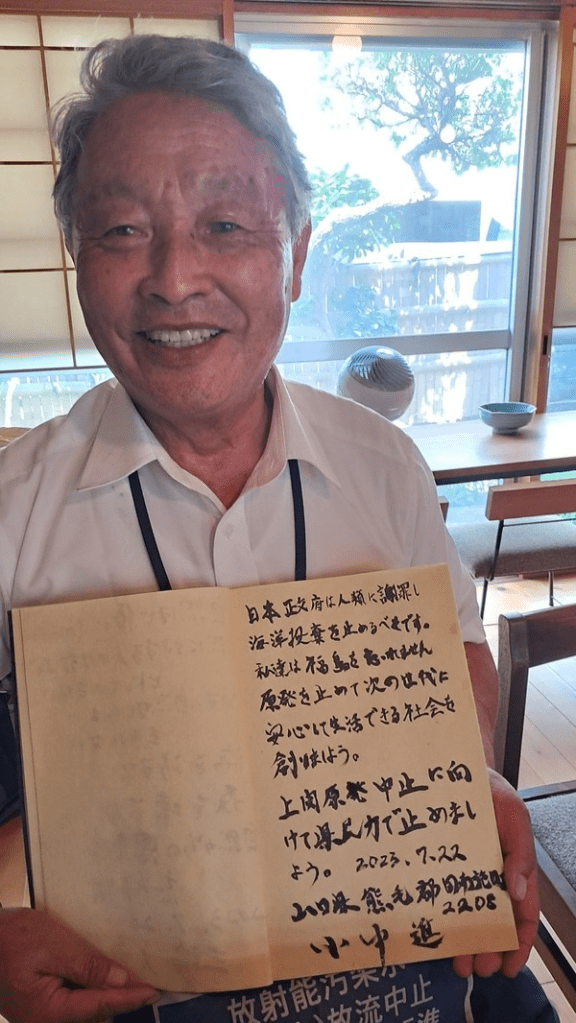 日本政府は人類に謝罪し
海洋投棄を止めるべきです。
私達は福島を忘れません
原発を止めて次の世代に
安心して生活できる社会を
創りましょう。
上関原発中止に向
けて県民力で止めまし
ょう。 2023.7.22
山口県熊毛郡田布施町
2208
小中進
放射能汚染水
放流中止